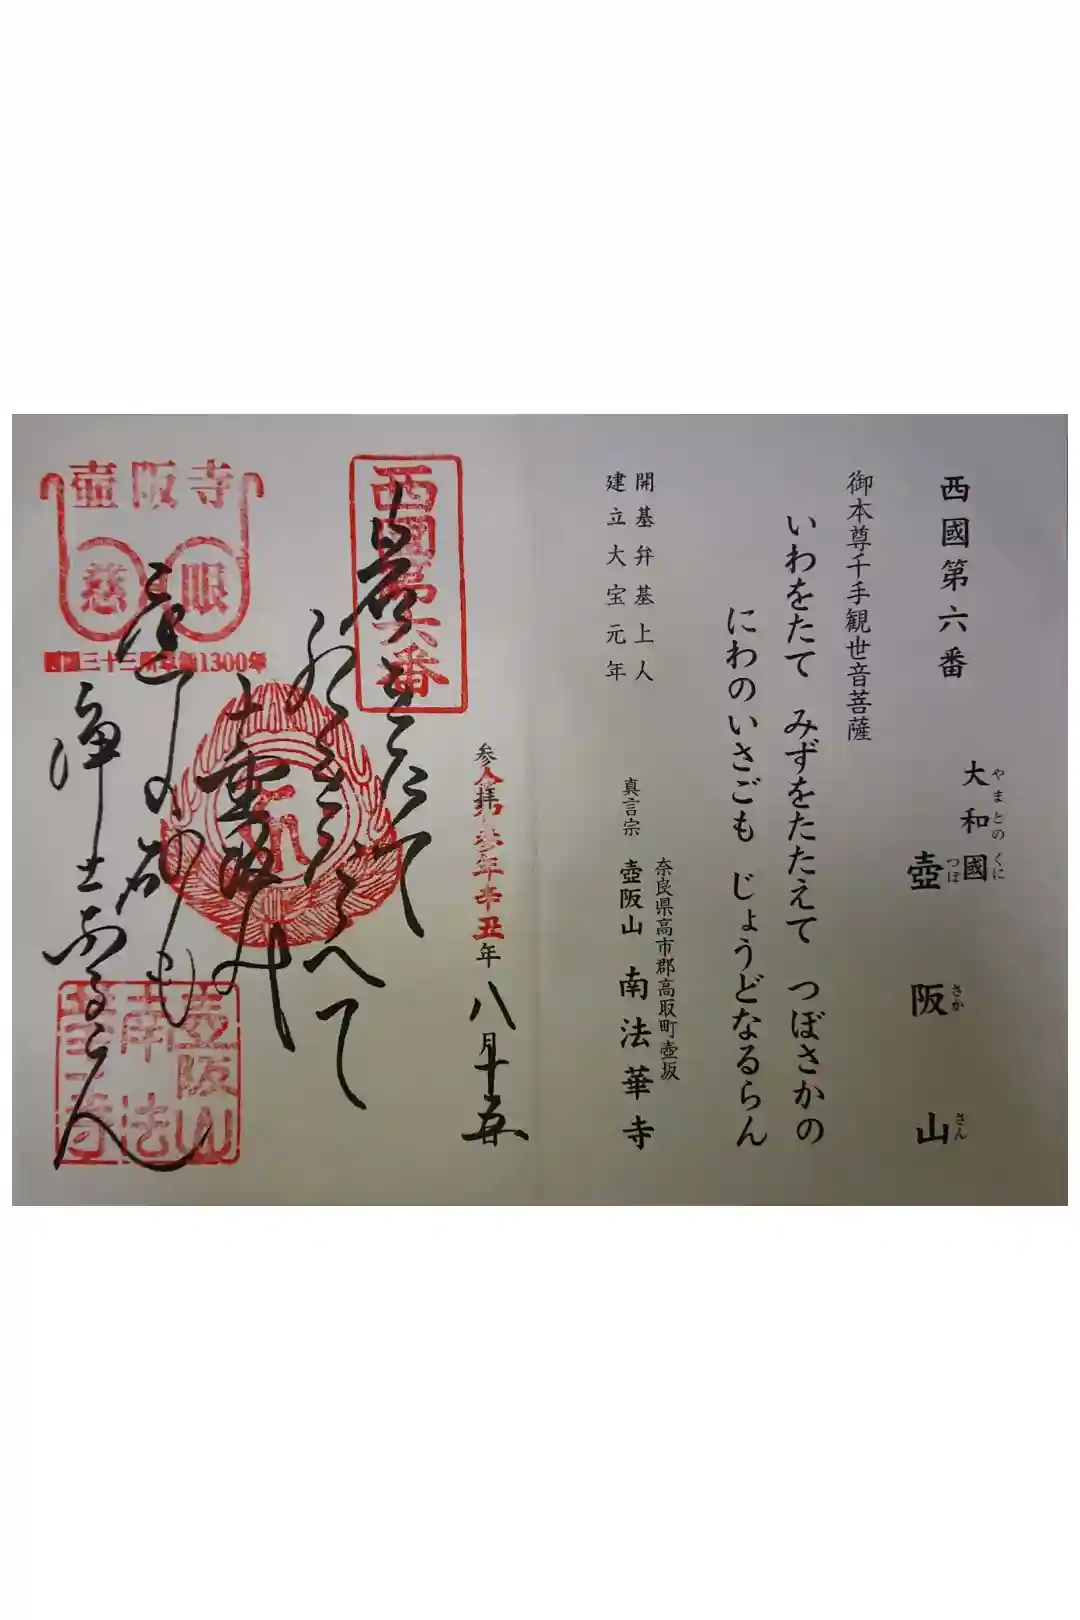 西國第六番
大和國
やまとのくに
壺阪山
つぼさかさん
御本尊千手観世音菩薩
いわをたて みずをたたえて つぼさかの
にわのいさごも じょうどなるらん
開基弁基上人
建立大宝元年
奈良県高市郡高取町壺坂
真言宗 壺阪山 南法華寺
参拝 令和参年辛丑年 八月十五日
西國第六番
岩をたて
水をたゝへて
壺阪の
庭の砂も
浄土なるらん
壺阪寺
慈眼
三十三所草創1300年
壺阪山
南法
華寺